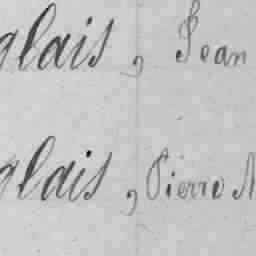 glais, Jean
glais, Pierre